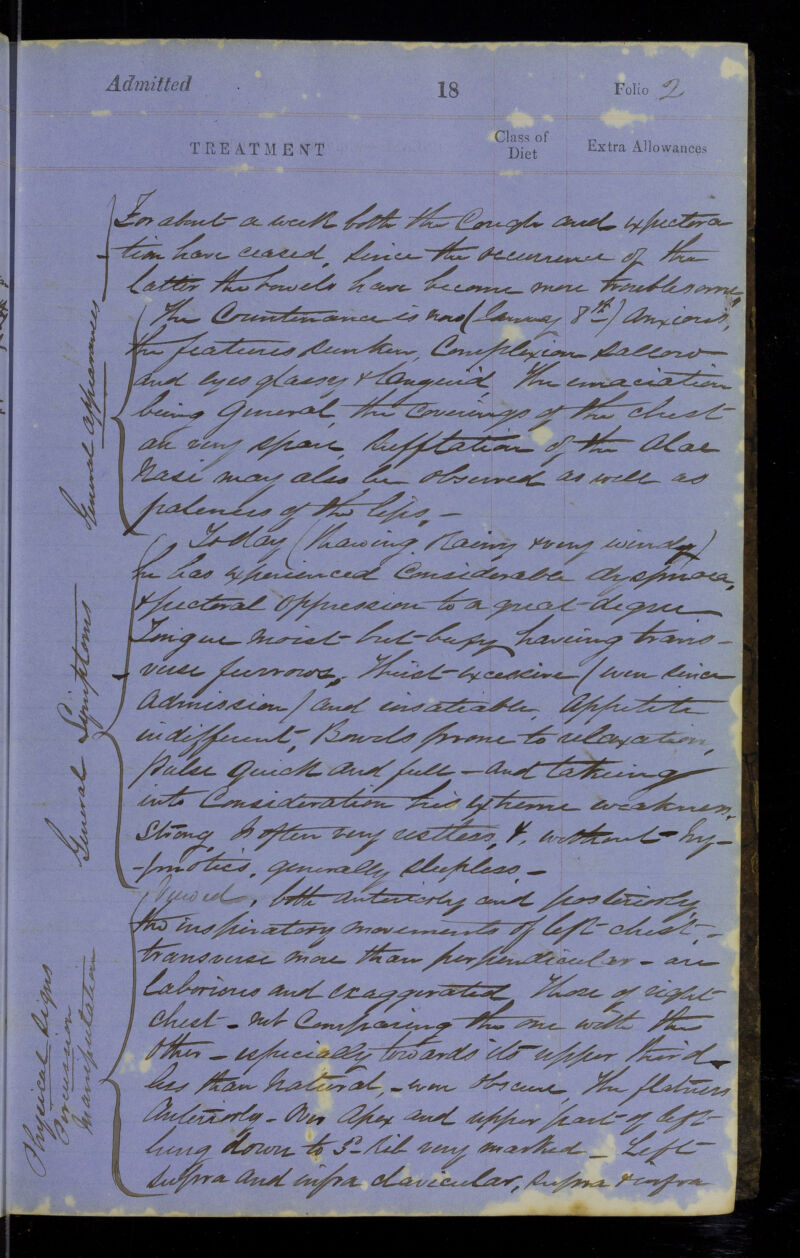 Admitted 18 Folio 2
TREATMENT Class of Diet Extra Allowances
For about a week both the Cough and expectora
tion have ceased, since the occurrence of the
latter the bowels have become more troublesome
General appearances
The Countenance is now (January 8th) anxious,
the features sunken, Complexion sallow
and eyes glassy & languid. The emaciation
being General, the coverings of the chest
are very spare, of the Alae
Nasi may also be observed as well as
paleness of the lips. —
General Symptoms
To day (thawing rainy & very windy)
he has experienced considerable dyspnoea,
& pectoral oppression to a great degree
Tongue moist but having trans-
verse furrows, Thirst excessive (even since
Admission) and insatiable, Appetite
indifferent, Bowels prone to relaxation,
Pulse quick and full — and takeing
into Consideration his extreme weakness,
Strong, Is often very restless, &, without hy-
-pnotics, generally sleepless —
Physical Signs
Percussion
Manipulation
Viewed, both anteriorly and posteriorly,
the inspiratory movements of left chest, —
transverse more than perpendicular — are
laborious and exaggerated. Those of right
chest — comparing the one with the
Other — especially towards its upper third
less than natural, — even obscure, The flatness
Anteriorly — Over Apex and upper part of left
lung down to 3d Rib very marked — Left
supra and infra clavicular, supra & infra